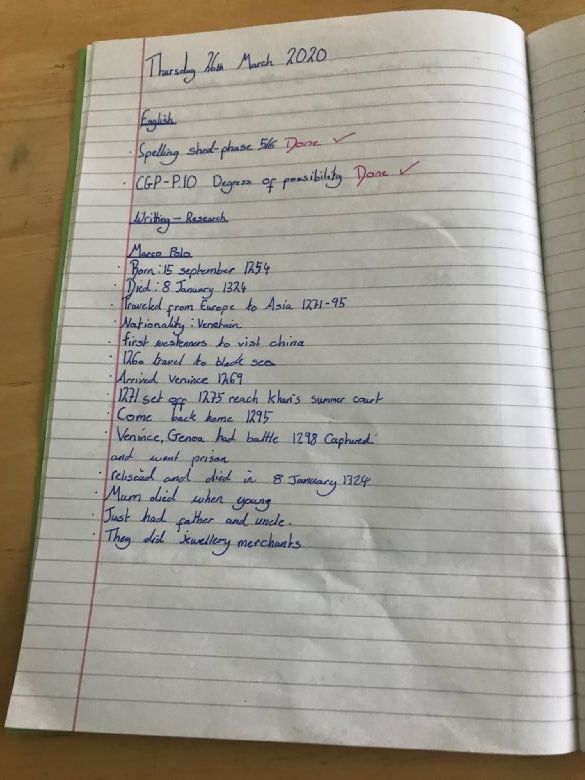 Thursday 26th March 2020
English
· Spelling shed-phase 5/6 Done ✓
· CGP-P.10 Degress of possibility Done ✓
Writting - Research
Marco Polo
· Born : 15 september 1254
· Died : 8 January 1324
· Traveled from Europe to Asia 1271-95
· Nationality : Venetain
· first westenners to vist china
· 1260 travel to black sea
· Arrived venince 1269
· 1271 set off 1275 reach Khan's summer court
· Come back home 1295
· Venince, Genoa had battle 1298 Captured
and went prison
· relisead and died in 8 January 1324
· Mum died when young
· Just had father and uncle.
· They did jewellery merchants